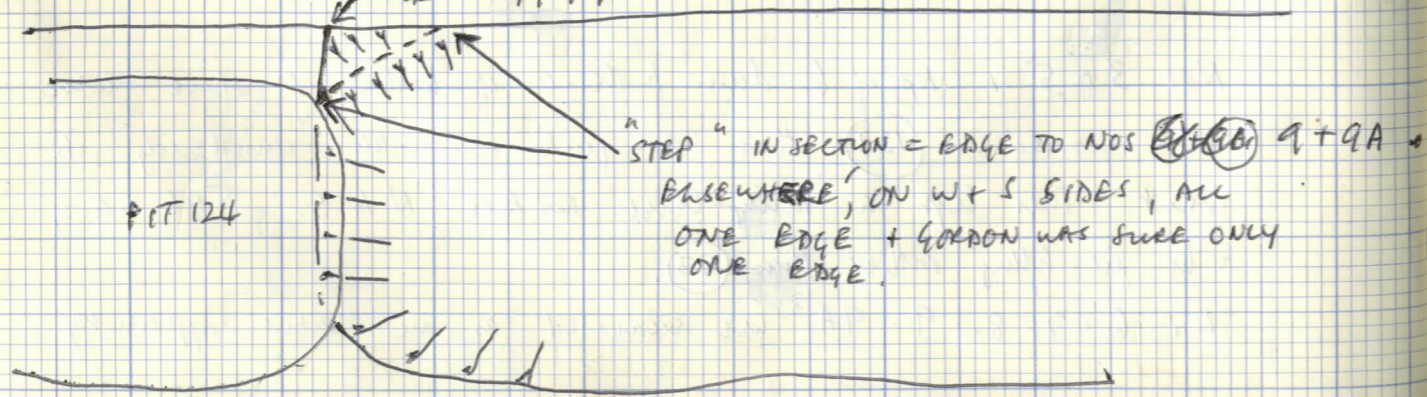 "STEP" IN SECTION = EDGE TO NOS 9 + 9A.
ELSEWHERE, ON W + S SIDES, ALL
ONE EDGE + GORDON WAS SURE ONLY
ONE EDGE.
PIT 124